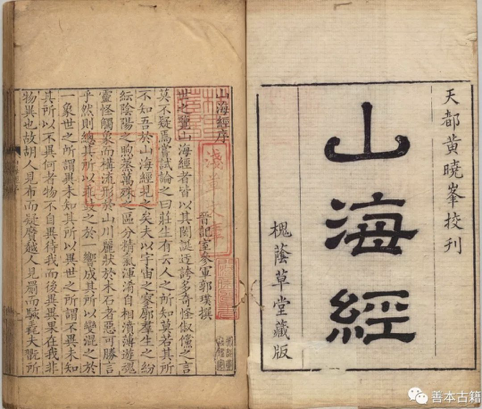 天都黃曉峯挍刊
山海經
槐蔭草堂藏版
山海經序
晉記室參軍郭璞撰
世之覽山海經者皆以其閎誕迂誇多奇怪俶儻之言
莫不疑焉嘗試論之曰莊生有云人之所知莫若其所
不知吾於山海經見之矣夫以宇宙之寥廓羣生之紛
紜陰陽之煦蒸萬殊之區分精氣渾淆自相濆薄遊魂
靈怪觸象而構流形於山川麗狀於木石者惡可勝言
乎然則總其所以乖鼓之於一響成其所以變混之於
一象世之所謂異未知其所以異世之所謂不異未知
其所以不異何者物不自異待我而後異異果在我非
物異也故胡人見布而疑黂越人見罽而駭毳夫翫所
善本古籍